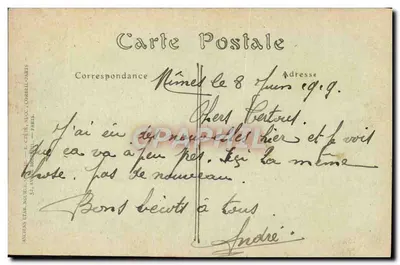 Carte Postale
Correspondance
Adresse
Nîmes le 8 Juin 1919.
Chers
J'ai eu des nouvelles hier et je vois
que ça va à peu pès. Ici la même
chose. pas de nouveau.
Bons bécots à tous.
André.